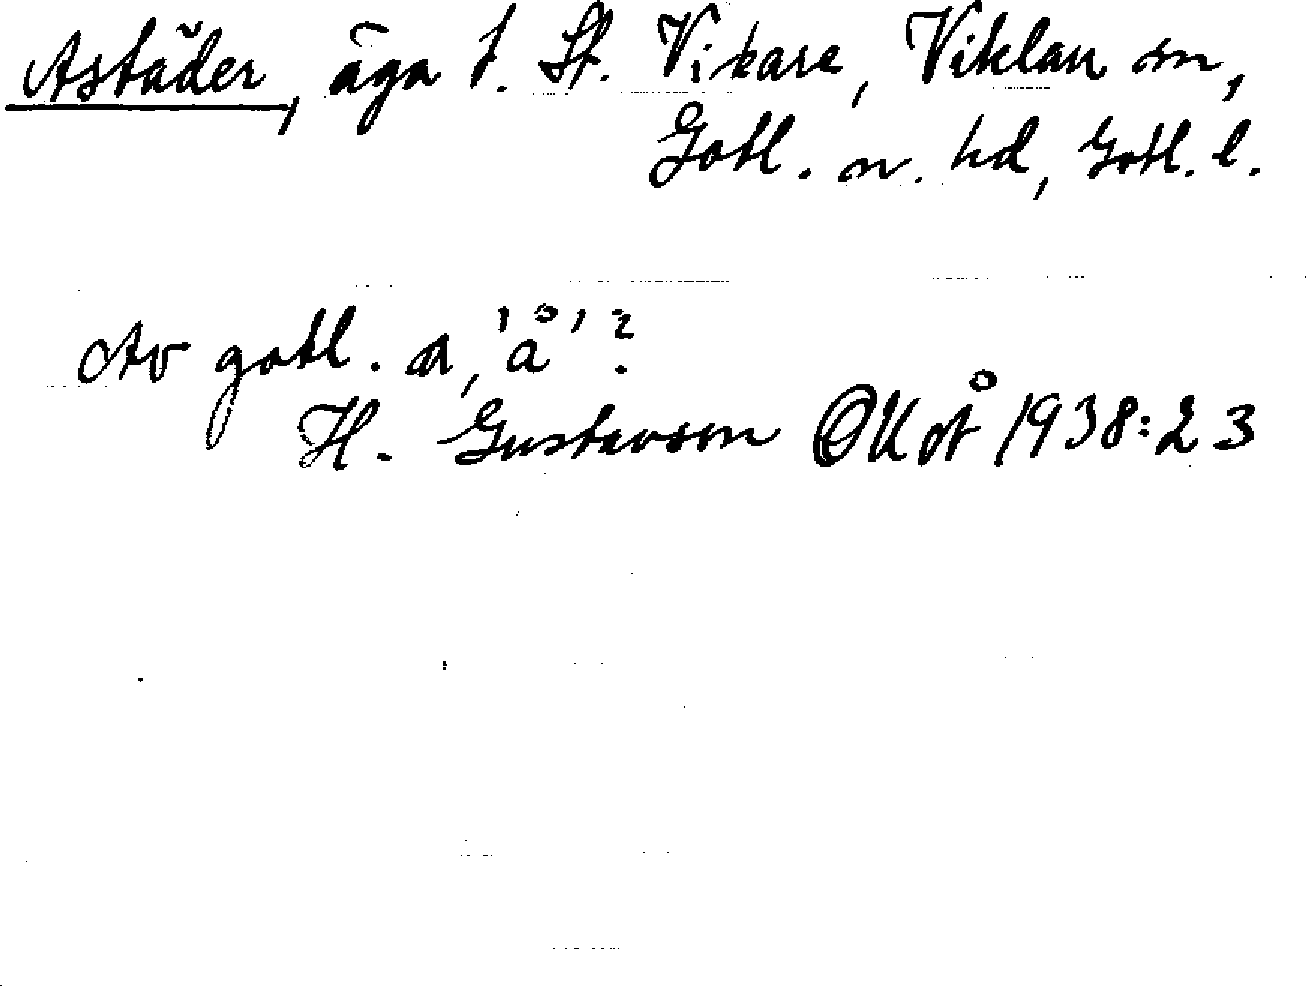 Astäder, äga t. St. Vikare, Viklau sn,
Gotl. n. hd, Gotl. l.
Av gotl. a, 'å'?
H. Gustavson OKoÅ 1938:23